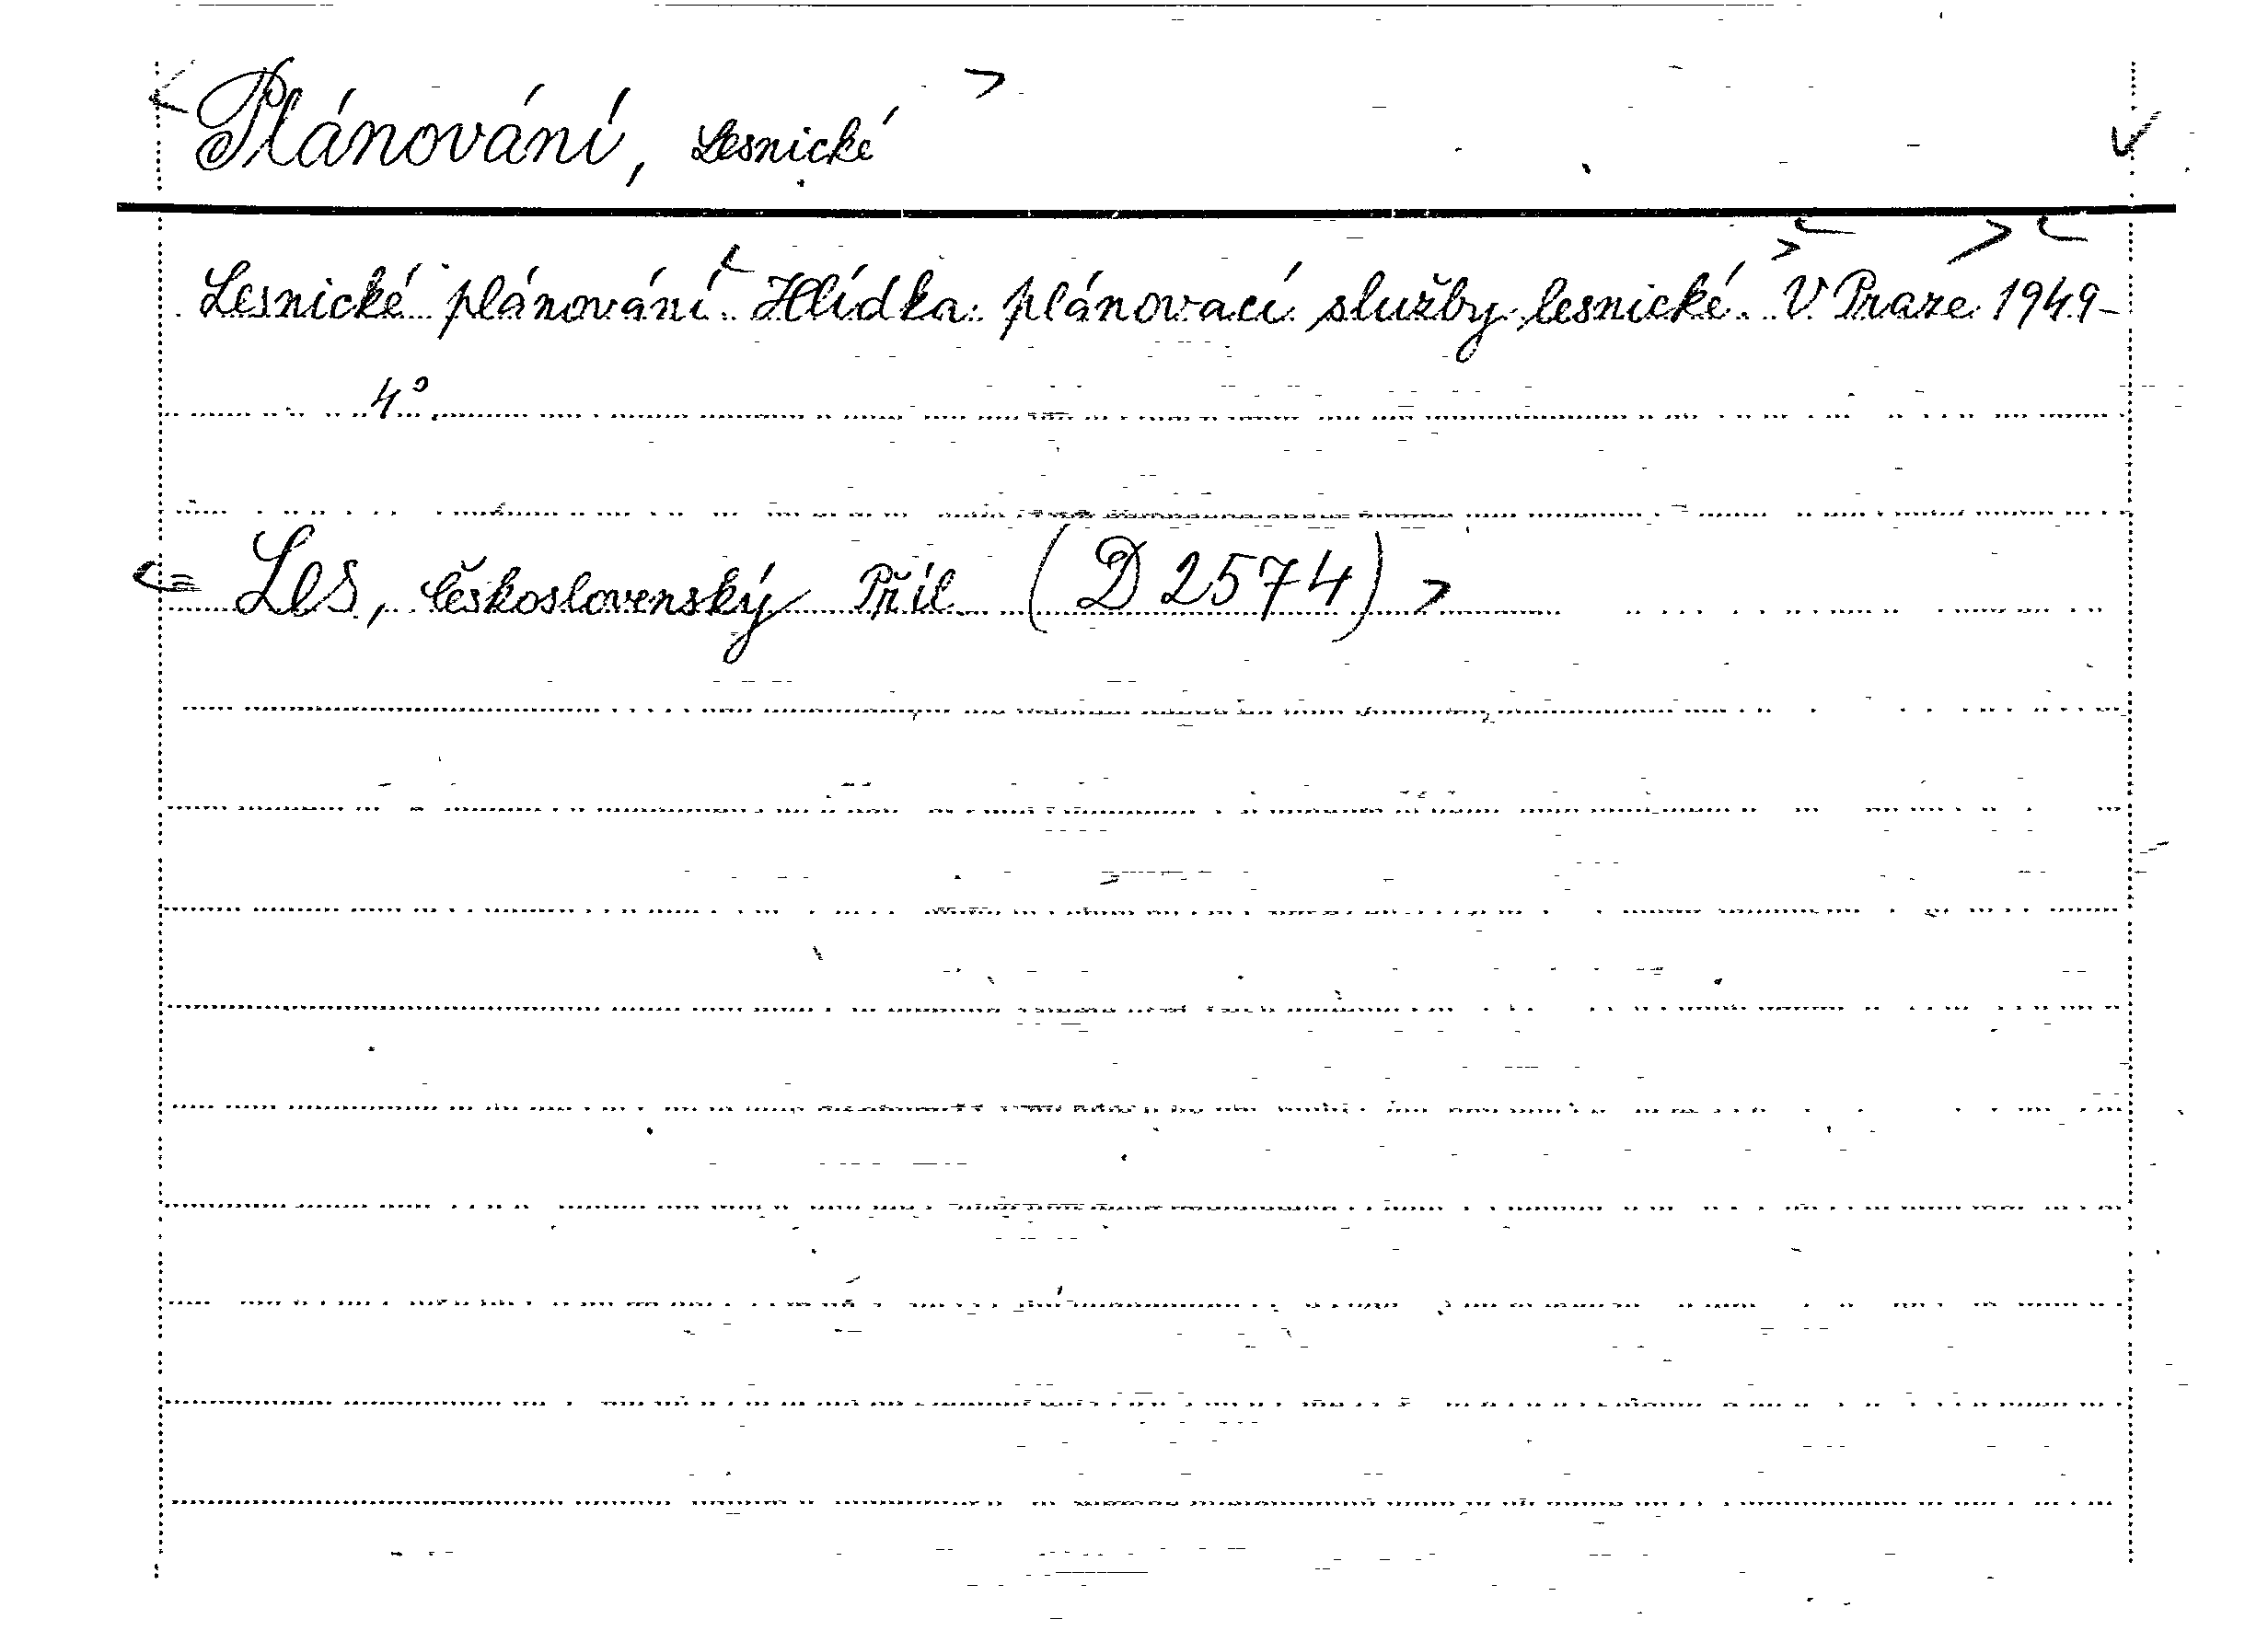 Plánování, Lesnické
Lesnické plánování. Hlídka plánovací služby lesnické. V Praze 1949-
4°.
Les, československý Příl. (D 2574)